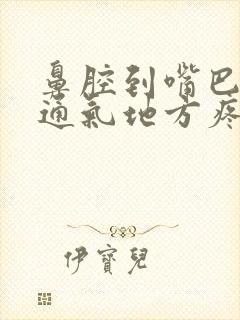 鼻腔到嘴巴
通氣地方疼
伊寶兒